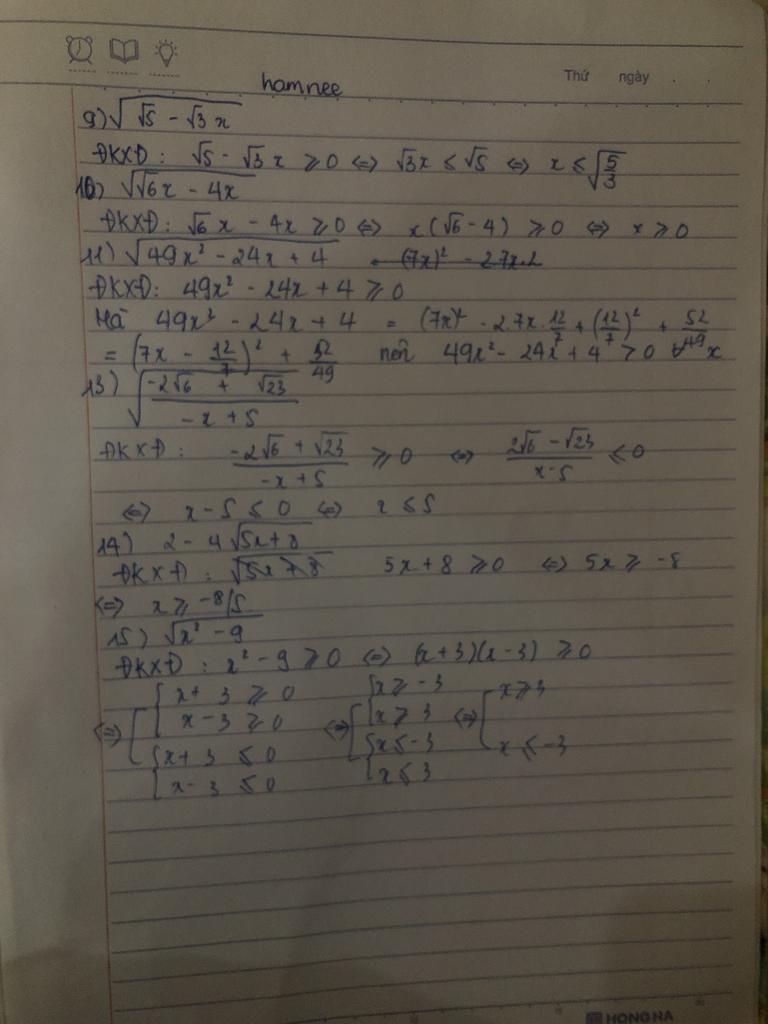 Thứ ngày . .
hamnee
9) √(√5 - √3 x)
ĐKXĐ: √5 - √3 x ≥ 0 ⇔ √3x ≤ √5 ⇔ x ≤ √(5/3)
10) √(√6x - 4x)
ĐKXĐ: √6 x - 4x ≥ 0 ⇔ x(√6 - 4) ≥ 0 ⇔ x ≥ 0
11) √(49x² - 24x + 4) = (7x)² - 2.7x.2
ĐKXĐ: 49x² - 24x + 4 ≥ 0
Mà 49x² - 24x + 4 = (7x)² - 2.7x.12/7 + (12/7)² + 52/49
= (7x - 12/7)² + 52/49 nên 49x² - 24x + 4 > 0 ∀ x
13) √((-2√6 + √23)/(-x + 5))
ĐKXĐ: (-2√6 + √23)/(-x + 5) ≥ 0 ⇔ (2√6 - √23)/(x - 5) ≤ 0
⇔ x - 5 ≤ 0 ⇔ x ≤ 5
14) 2 - 4√(5x + 8)
ĐKXĐ: √(5x + 8) 5x + 8 ≥ 0 ⇔ 5x ≥ -8
⇔ x ≥ -8/5
15) √(x² - 9)
ĐKXĐ: x² - 9 ≥ 0 ⇔ (x + 3)(x - 3) ≥ 0
{ x + 3 ≥ 0 { x ≥ -3 [ x ≥ 3
⇔ [ { x - 3 ≥ 0 ⇔ [ { x ≥ 3 ⇔
{ x + 3 ≤ 0 { x ≤ -3 x ≤ -3
{ x - 3 ≤ 0 { x ≤ 3
HONG HA